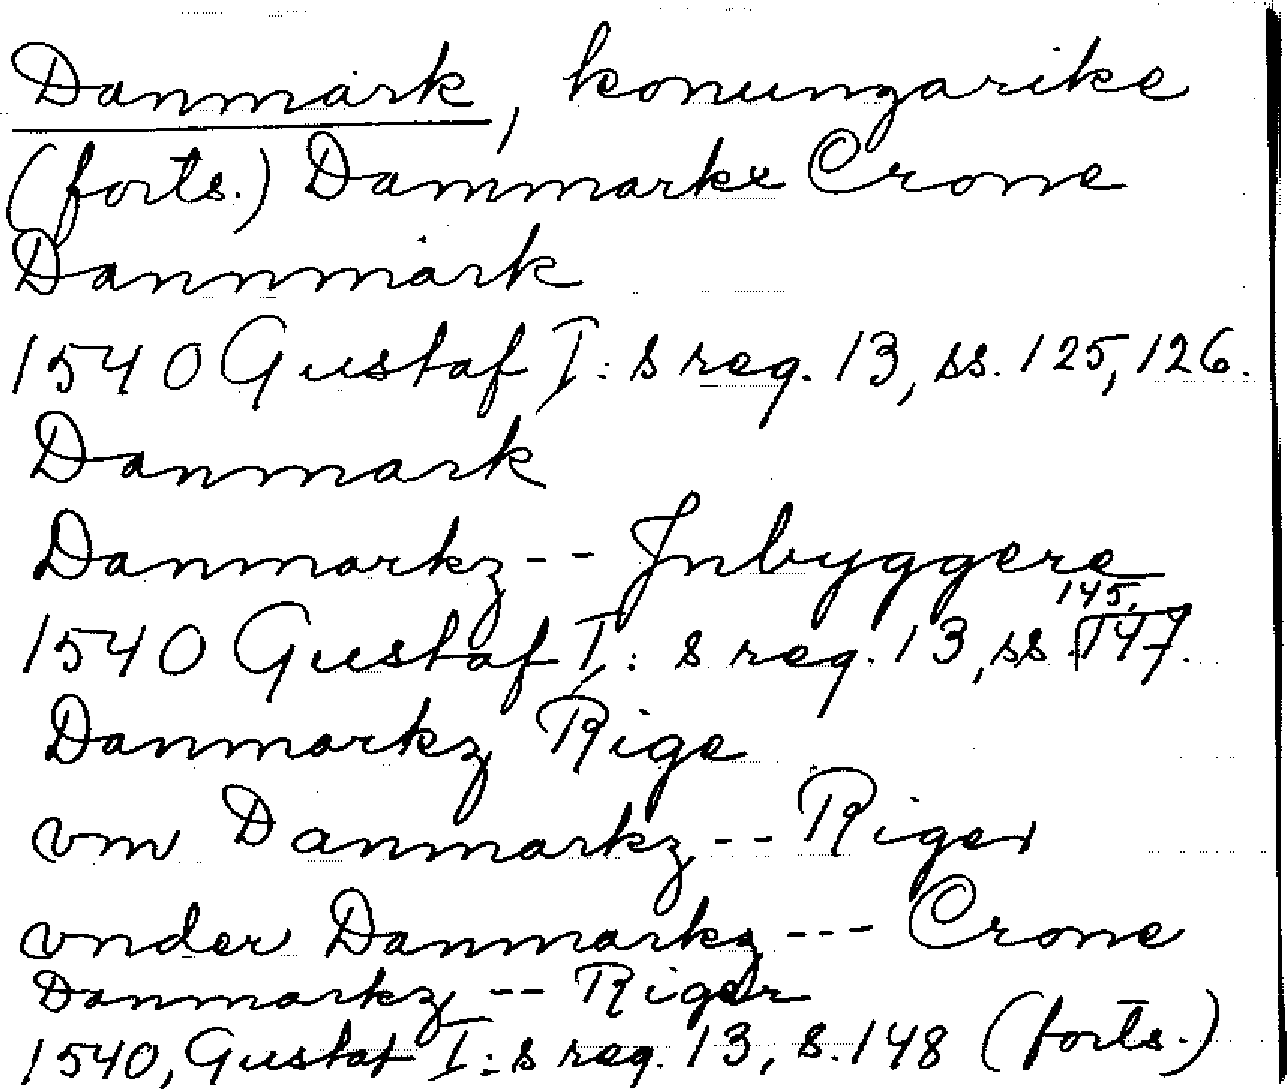 Danmark, konungarike
(forts.) Dammarkx Crone
Dannmark
1540 Gustaf I:s reg. 13, ss. 125, 126.
Danmark
Danmarkz -- Jnbyggere
1540 Gustaf I:s reg. 13, ss. 145, 147.
Danmarkz Rige
vm Danmarkz -- Riger
vnder Danmarkz --- Crone
Danmarkz -- Riger
1540, Gustaf I:s reg. 13, s. 148 (forts.)